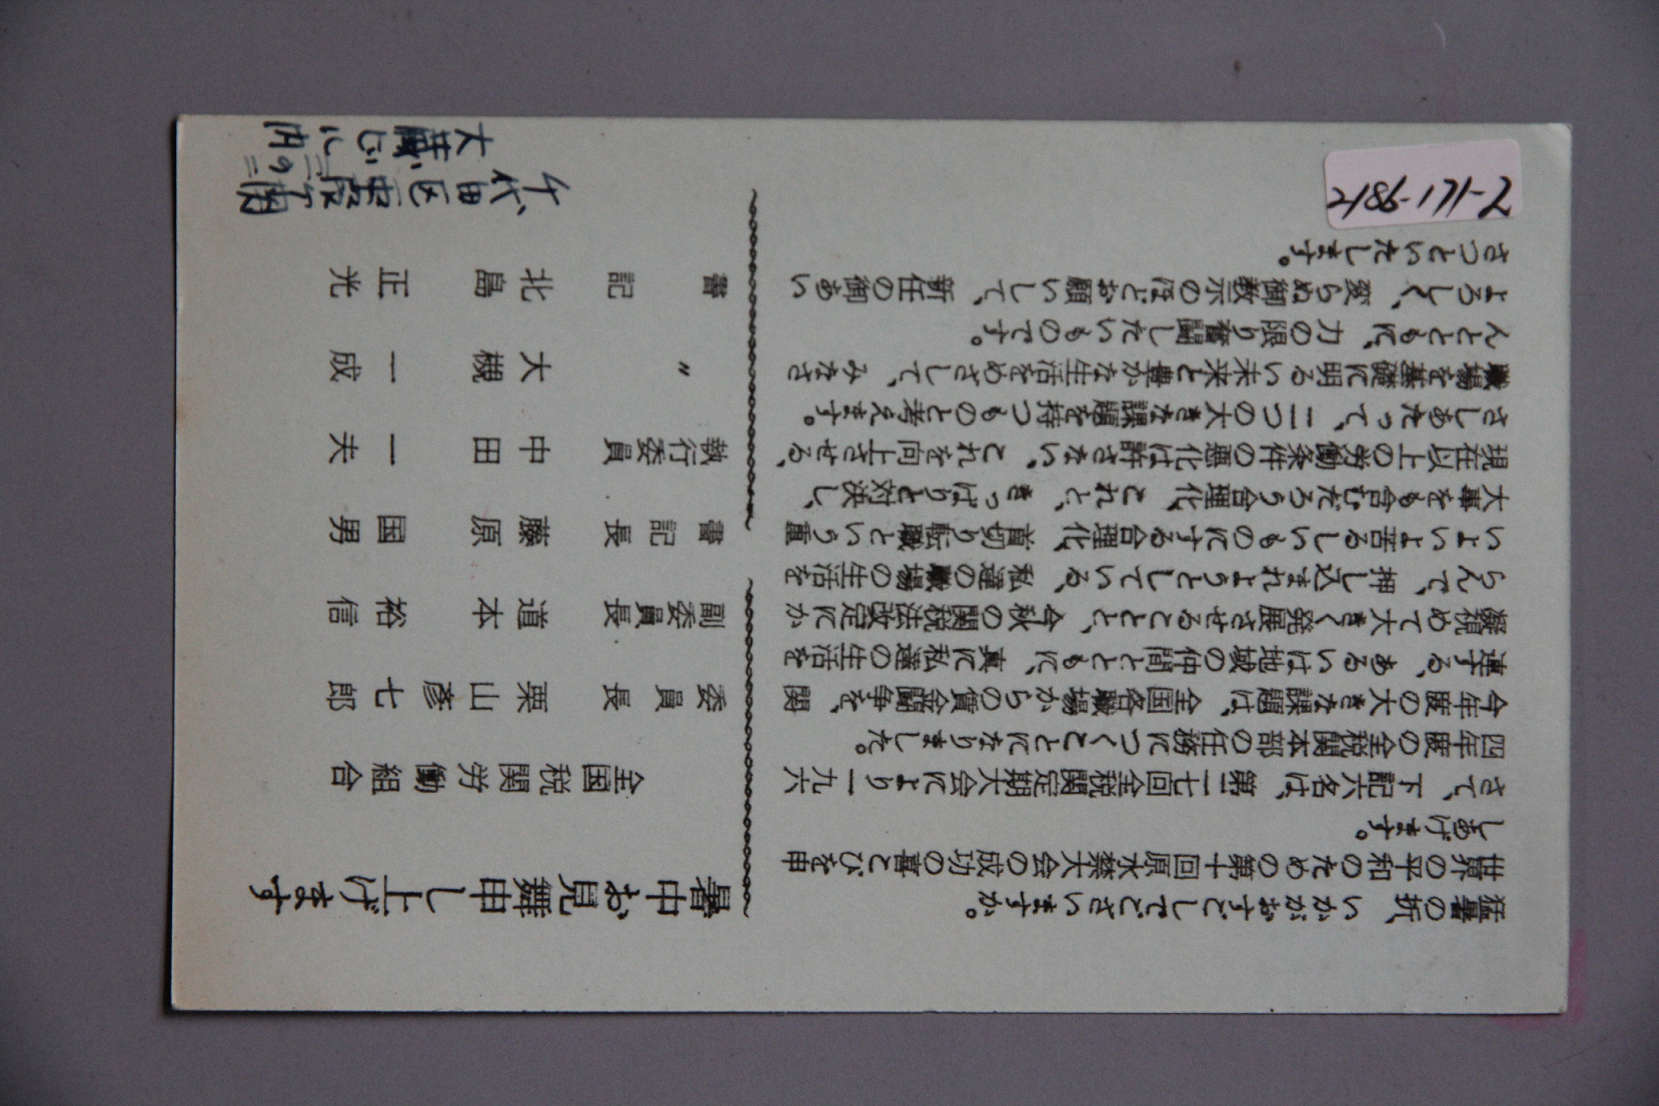 猛暑の折、いかがおすごしでございますか。
世界の平和のための第十回原水禁大会の成功の喜こびを申
しあげます。
さて、下記六名は、第一七回全税関定期大会により一九六
四年度の全税関本部の任務につくことになりました。
今年度の大きな課題は、全国各職場からの賃金闘争を、関
連する、あるいは地域の仲間とともに、真に私達の生活を
凝視めて大きく発展させることと、今秋の関税法改定にか
らんで、押し込まれようとしている、私達の職場の生活を
いよいよ苦るしいものにする合理化、首切り転職という重
大事をも含むだろう合理化、これと、きっぱりと対決し、
現在以上の労働条件の悪化は許さない、これを向上させる、
さしあたって、二つの大きな課題を持つものと考えます。
職場を基礎に明るい未来と豊かな生活をめざして、みなさ
んとともに、力の限り奮闘したいものです。
よろしく、変らぬ御教示のほどお願いして、新任の御あい
さつといたします。
暑中お見舞申し上げます
全国税関労働組合
委員長 栗山彦七郎
副委員長 道本裕信
書記長 藤原国男
執行委員 中田一夫
〃 大槻一成
書記 北畠正光
千代田区霞ヶ関
大蔵ビル内
2186-171-2